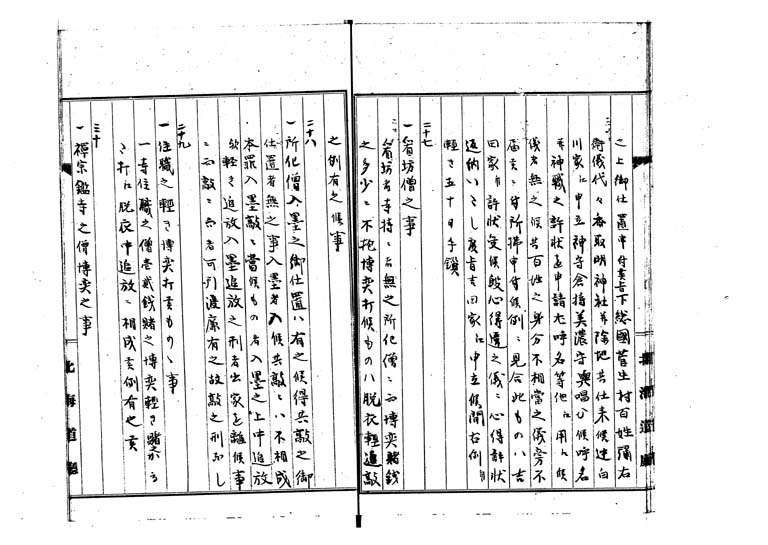 之上御仕置申付其上下総國菅生村百姓彌右
衛儀代々香取明神社并除地共仕来候迚白
川家江申立神号倉掎美濃守與唱分候呼名
并神職之許状を申請右呼名等他江用ヒ候
儀者無之候共百姓之身分不相當之儀旁不
届ニ付所拂申付候例ニ見合此もの八吉
田家ゟ許状受候般心得違之儀ニ心得許状
返納いたし度旨吉田家江申立候間右例ゟ
軽き五十日手鎖
二十七
一看坊僧之事
看坊者寺持ニ而無之所化僧ニ而博奕賭銭
之多少ニ不拘博奕打候もの八脱衣軽追放
之例有之候事
二十八
一所化僧入墨之御仕置八有之候得共敲之御
仕置者無之事入墨者入候共敲ニ八不相成
本罪入墨敲ニ當候もの者入墨之上中追放
軽き追放入墨追放之刑者出家を離候事
ニ而敲ニ而者可引渡廉有之故敲之刑なし
二十九
一住職之軽き博奕打候もの之事
一寺住職之僧壱弐銭賭之博奕軽き賭
ニ打江脱衣中追放ニ相成候例有之
三十
一禅宗鑑寺之僧博奕之事
北海道廳
北海道廳